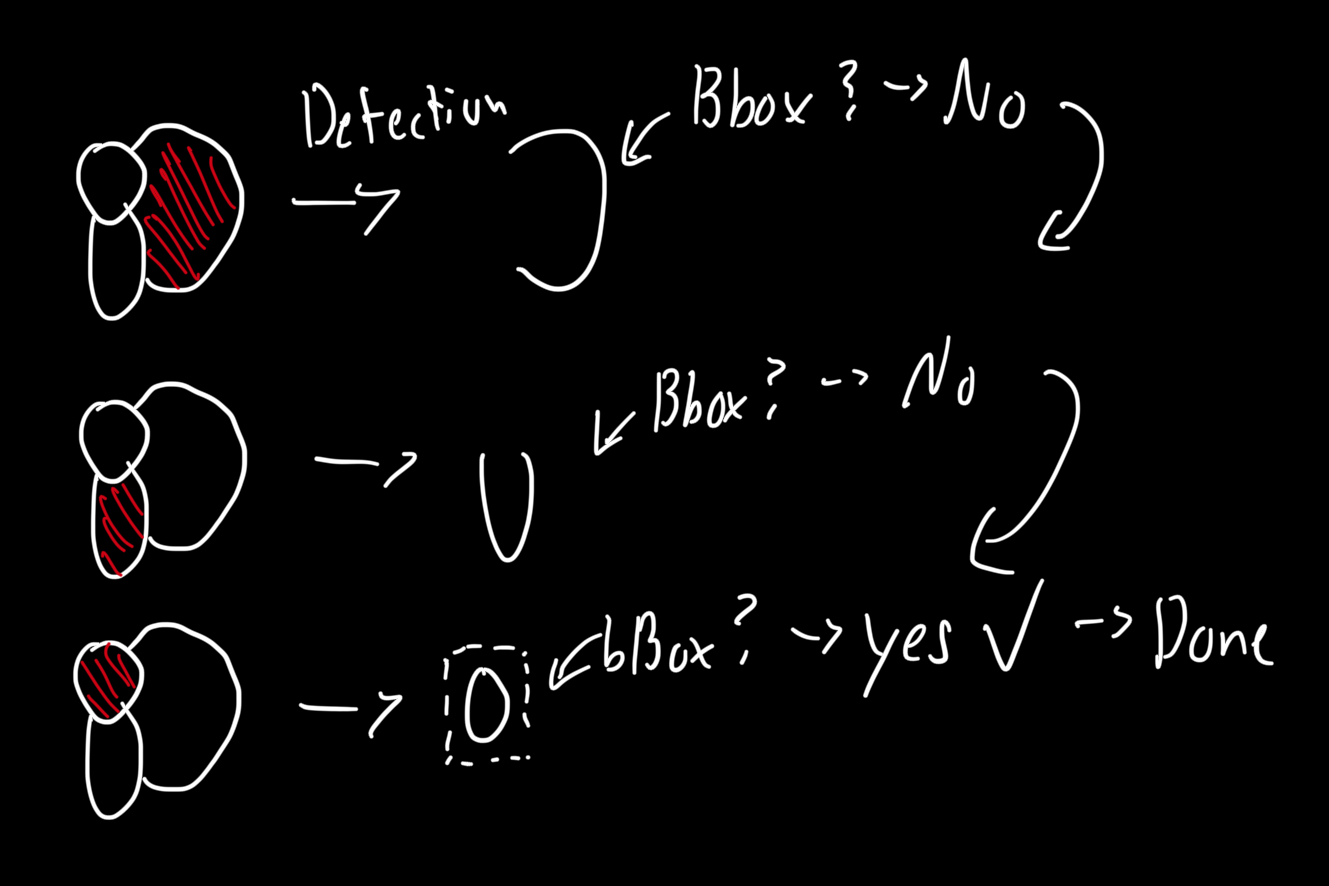 Detection
Bbox? -> No
Bbox? -> No
bBox? -> yes ✓ -> Done